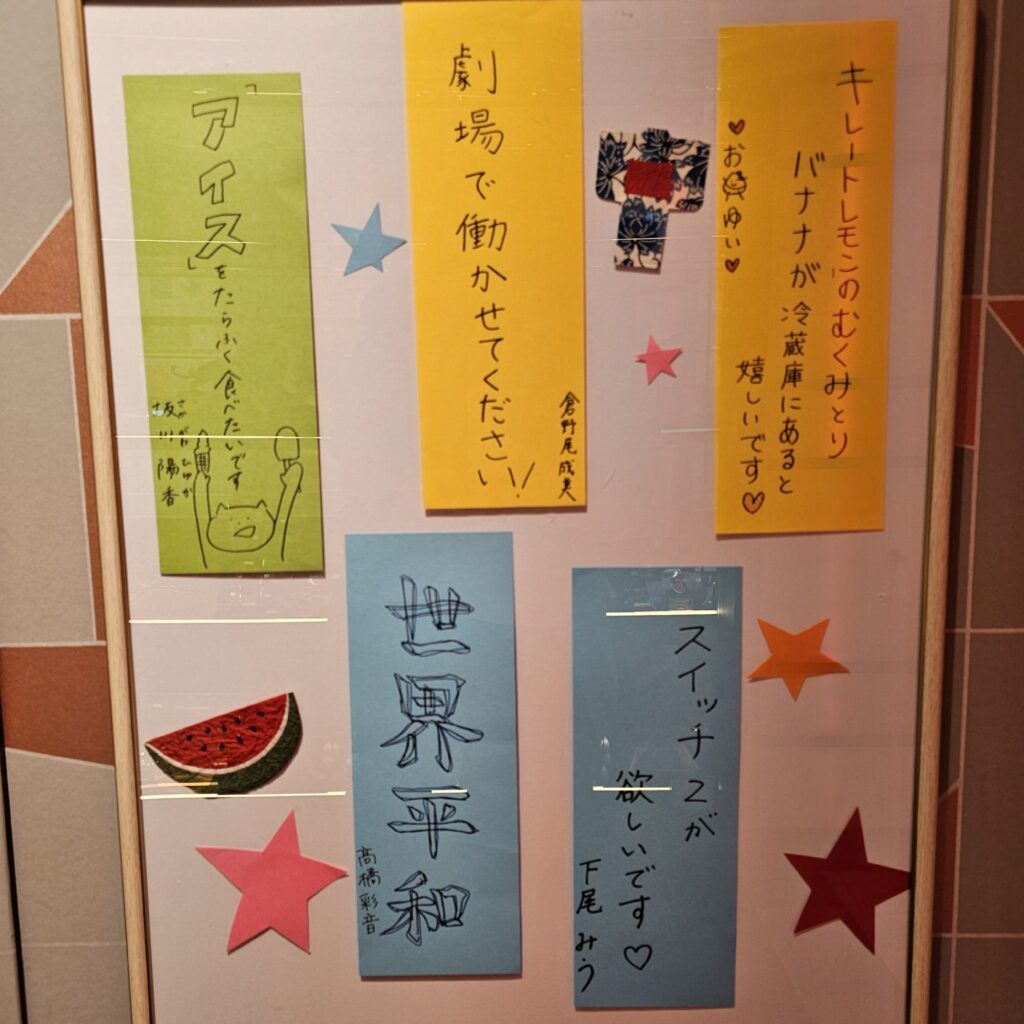 キレートレモンのむくみとり
バナナが冷蔵庫にあると
嬉しいです♡
♡お ゆい♡
劇場で働かせてください!!
倉野尾成美
「アイス」をたらふく食べたいです
さかがわひゅか
坂川陽香
スイッチ2が
欲しいです♡
下尾みう
世界平和
高橋彩音